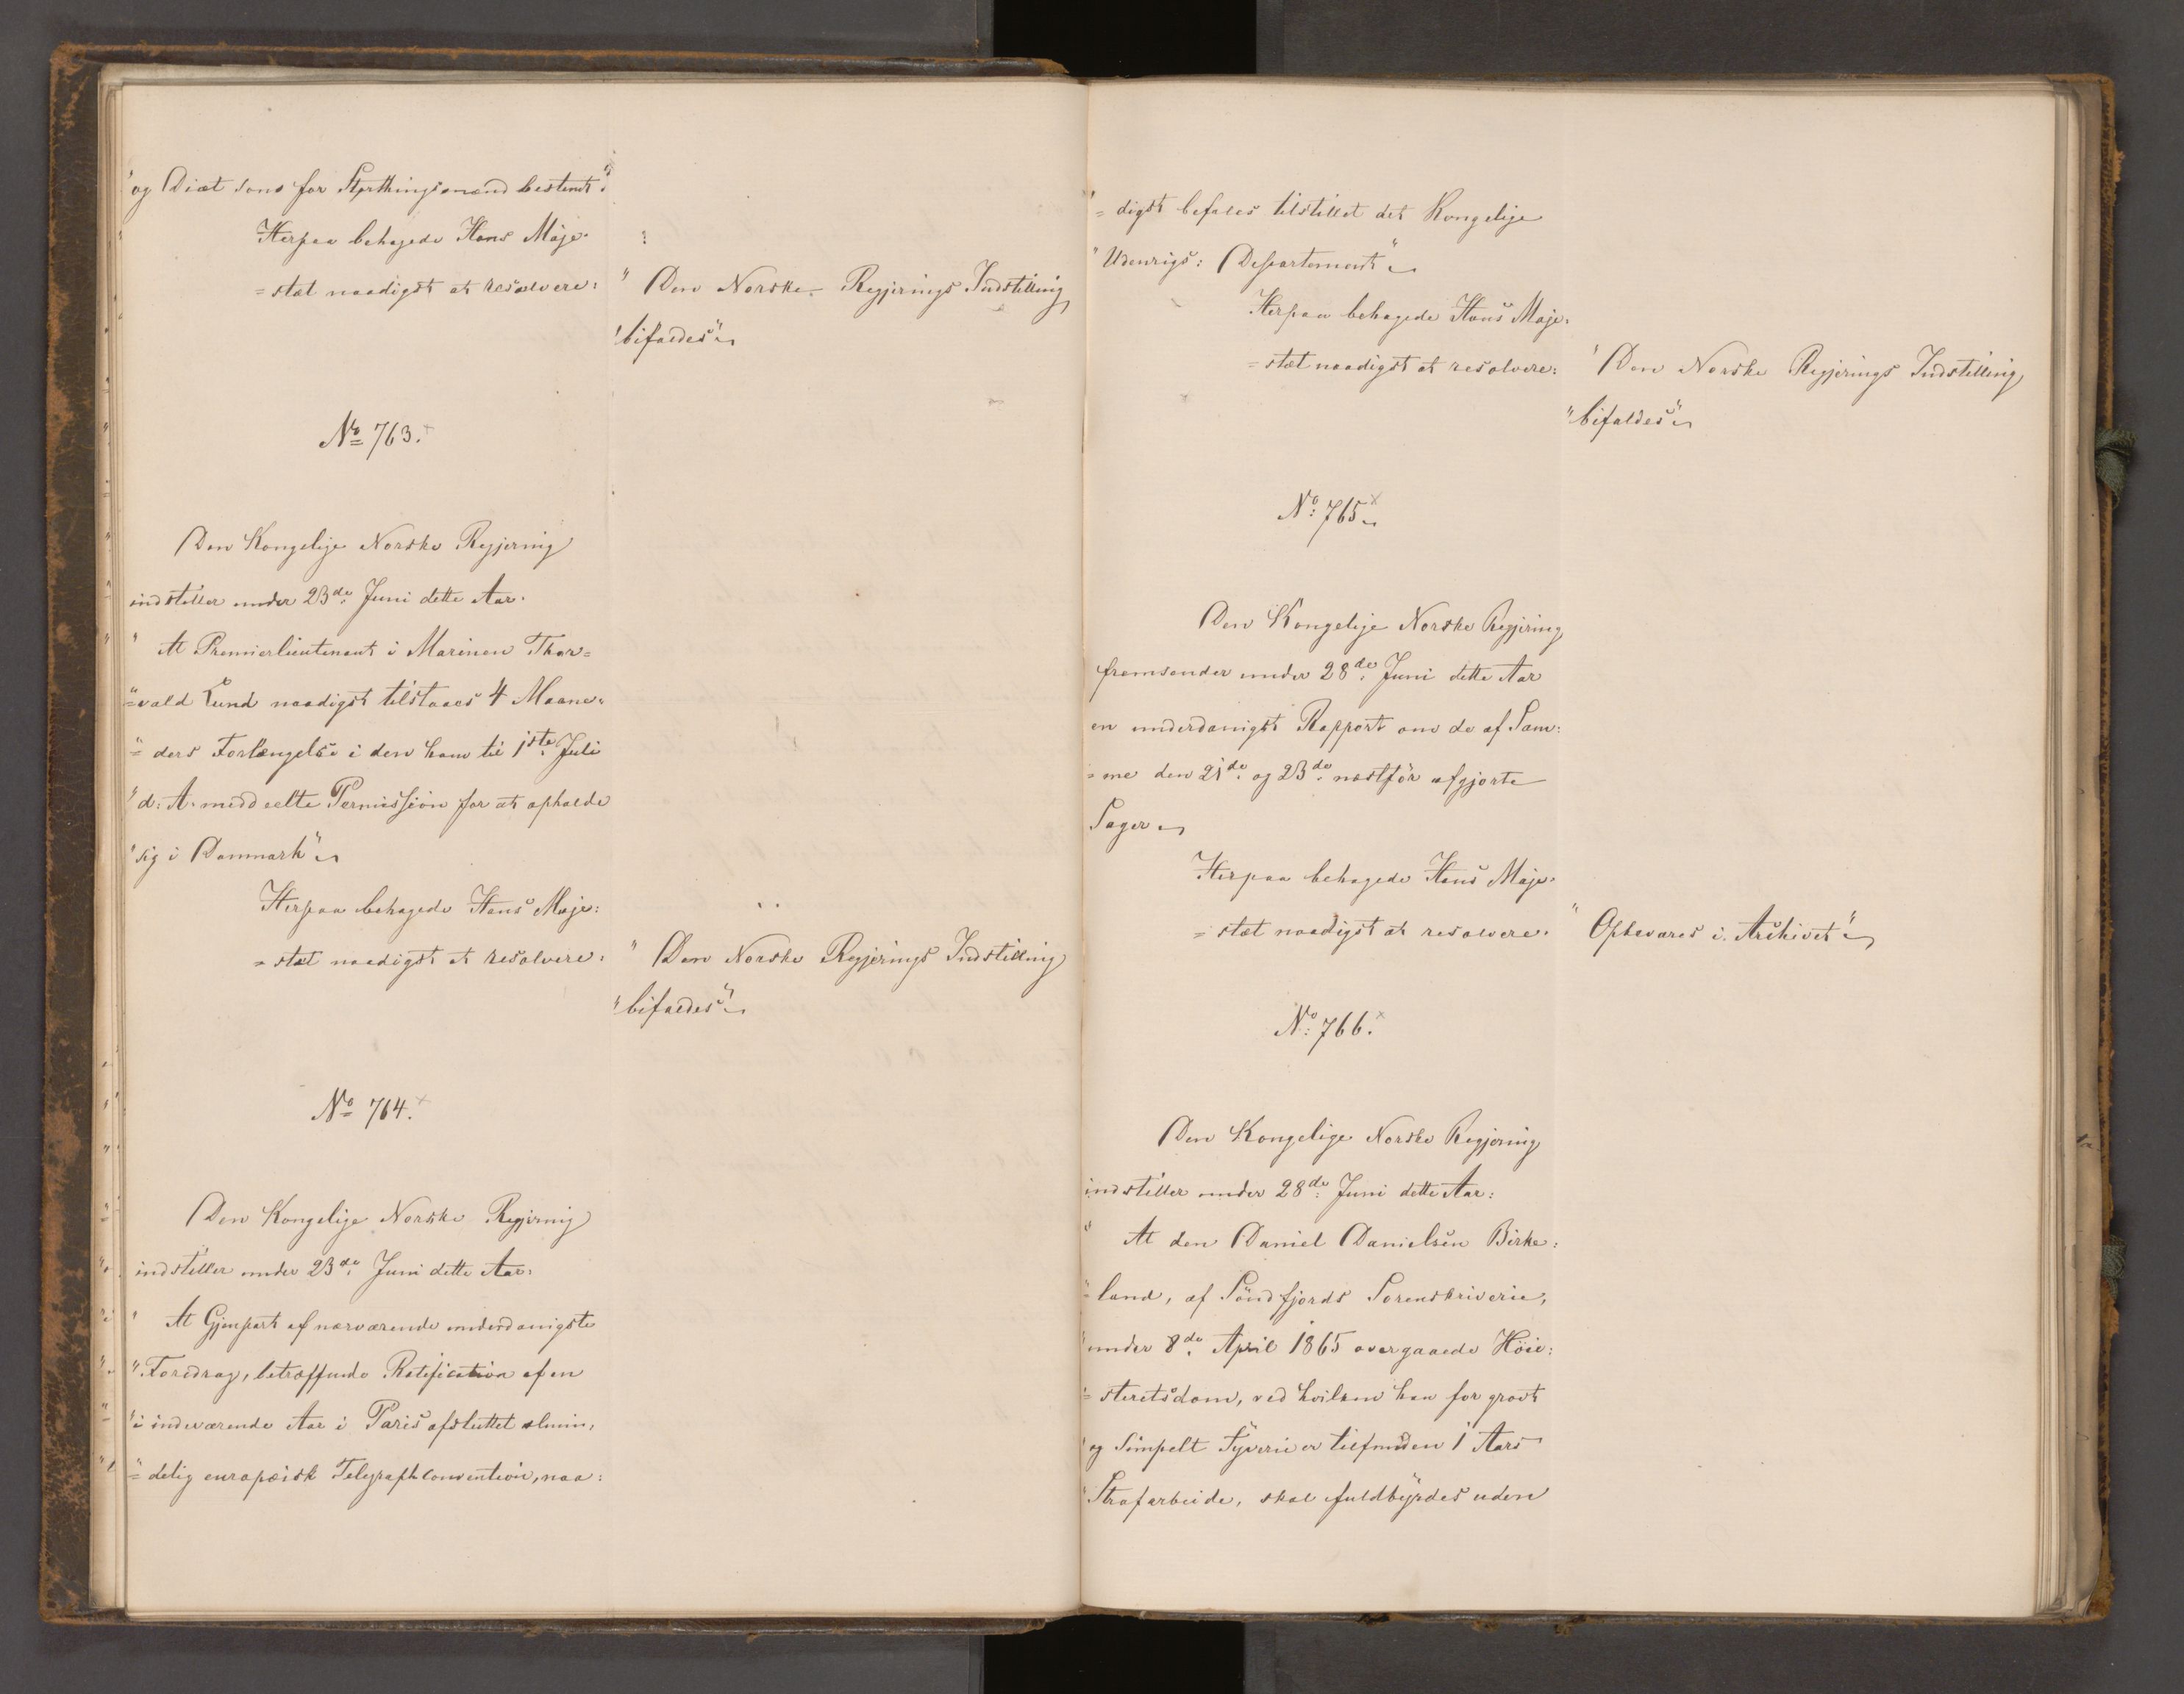 "og Diæt som for Storthingsmænd bestemt."
Herpaa behagede Hans Maje-
=stæt naadigst at resolvere:
"Den Norske Regjerings Indstilling
"bifaldes".
No 763.
Den Kongelige Norske Regjering
indstiller under 23de Juni dette Aar.
"At Premierlieutenant i Marinen Thor=
"=vald Lund naadigst tilstaaes 4 Maane-
"=ders Forlængelse i den ham til 1ste Juli
"d: A. meddeelte Permission for at opholde
"sig i Danmark".
Herpaa behagede Hans Maje:
=stæt naadigst at resolvere:
"Den Norske Regjerings Indstilling
"bifaldes".
No 764.
Den Kongelige Norske Regjering
indstiller under 23de Juni dette Aar:
"At Gjenpart af nærværende underdanigste
"Foredrag, betræffende Ratification af en
"i indeværende Aar i Paris afsluttet almin,
"=delig europæisk Telegraphconvention, naa:
"=digst befales tilstillet det Kongelige
"Udenrigs: Departement".
Herpaa behagede Hans Maje:
=stæt naadigst at resolvere:
"Den Norske Regjerings Indstilling
"bifaldes".
No: 765.
Den Kongelige Norske Regjering
fremsender under 28de Juni dette Aar
en underdanigst Rapport om de af Sam:
=me den 21de og 23de næstför afgjorte
Sager.
Herpaa behagede Hans Maje-
=stæt naadigst at resolvere.
"Opbevares i Archivet".
No: 766.
Den Kongelige Norske Regjering
indstiller under 28de Juni dette Aar:
"At den Daniel Danielsen Birke:
"=land, af Söndfjords Sorenskriverie,
"under 8de April 1865 overgaaede Höie:
"=steretsdom, ved hvilken han for grovt
"og simpelt Tyverie er tilfunden 1 Aars
"Strafarbeide, skal fuldbyrdes uden